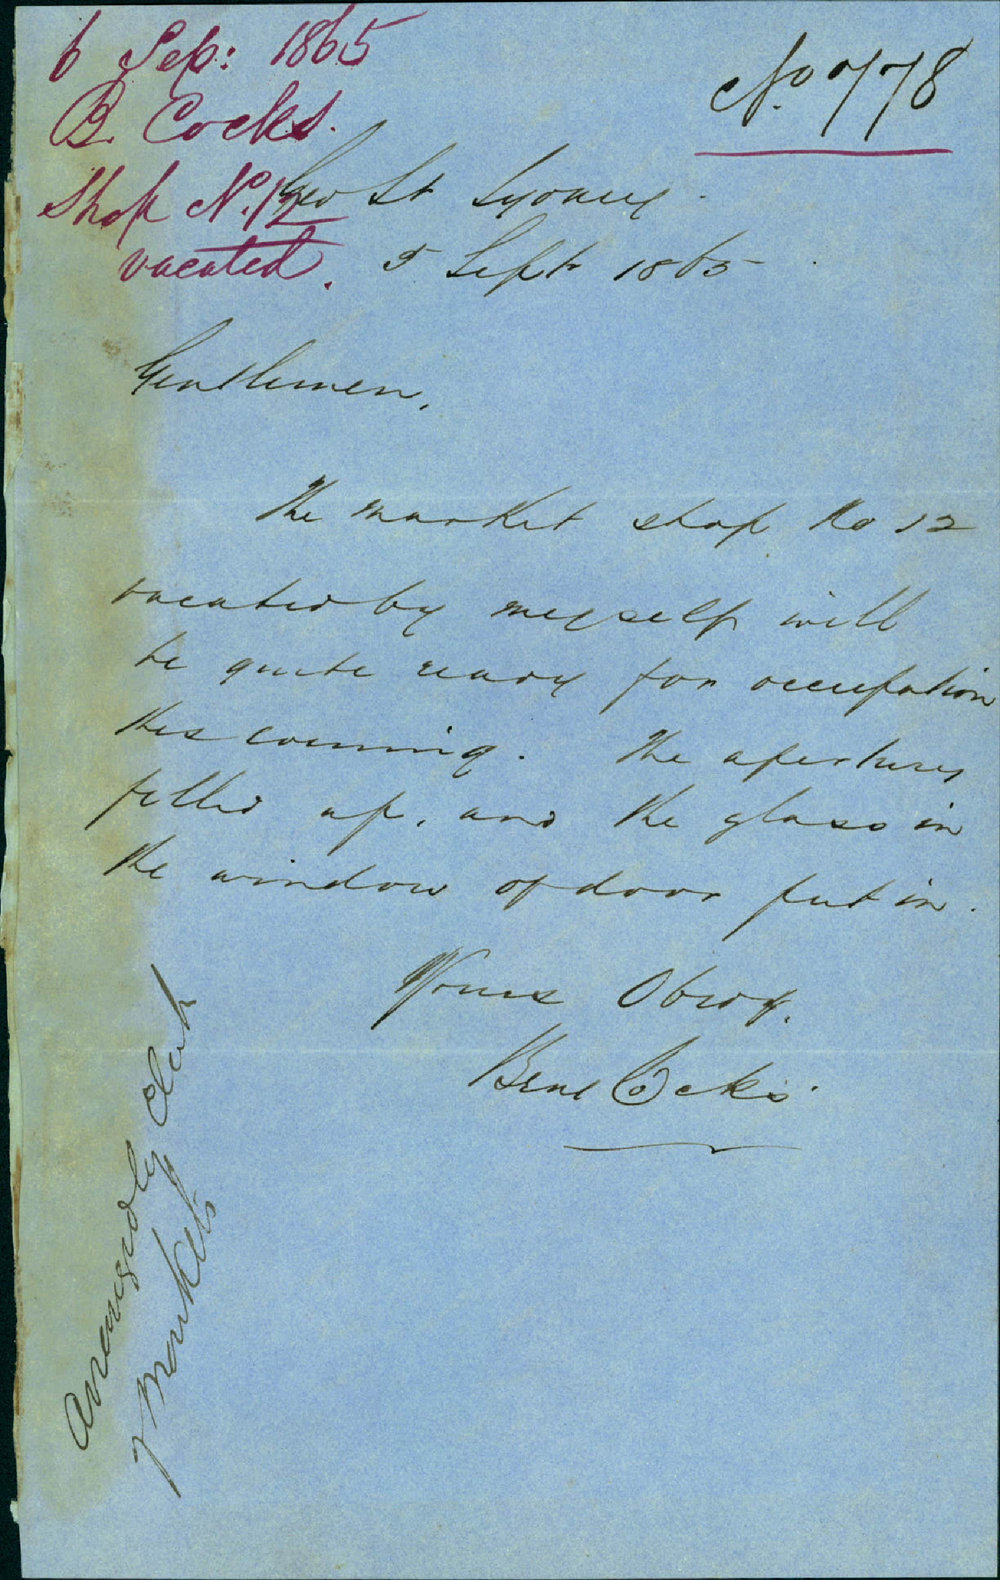 6 Sep: 1865
B. Cocks.
Shop No. 12
vacated.
No 778
Geo St Sydney.
5 Sept 1865.
Gentlemen,
The market shop No 12
vacated by myself will
be quite ready for occupation
this evening. The apertures
filled up, and the glass in
the window of door put in.
Yours Obedy.
Benj Cocks
Arranged by Clerk
of Markets